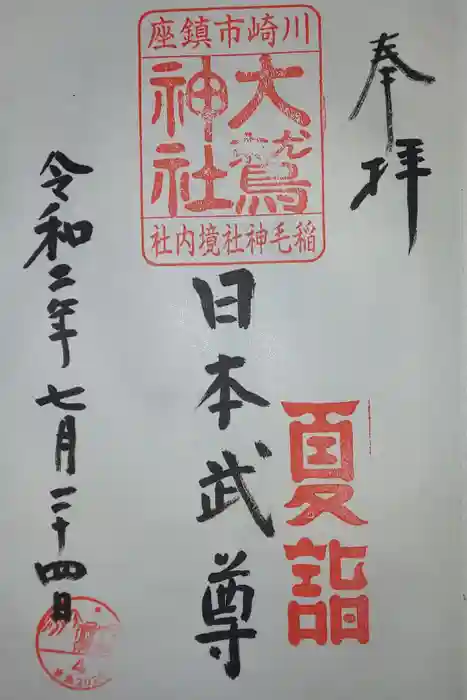 奉拝
川崎市鎮座
大鷲
神社
稲毛神社境内社
日本武尊
夏詣
令和二年七月二十四日